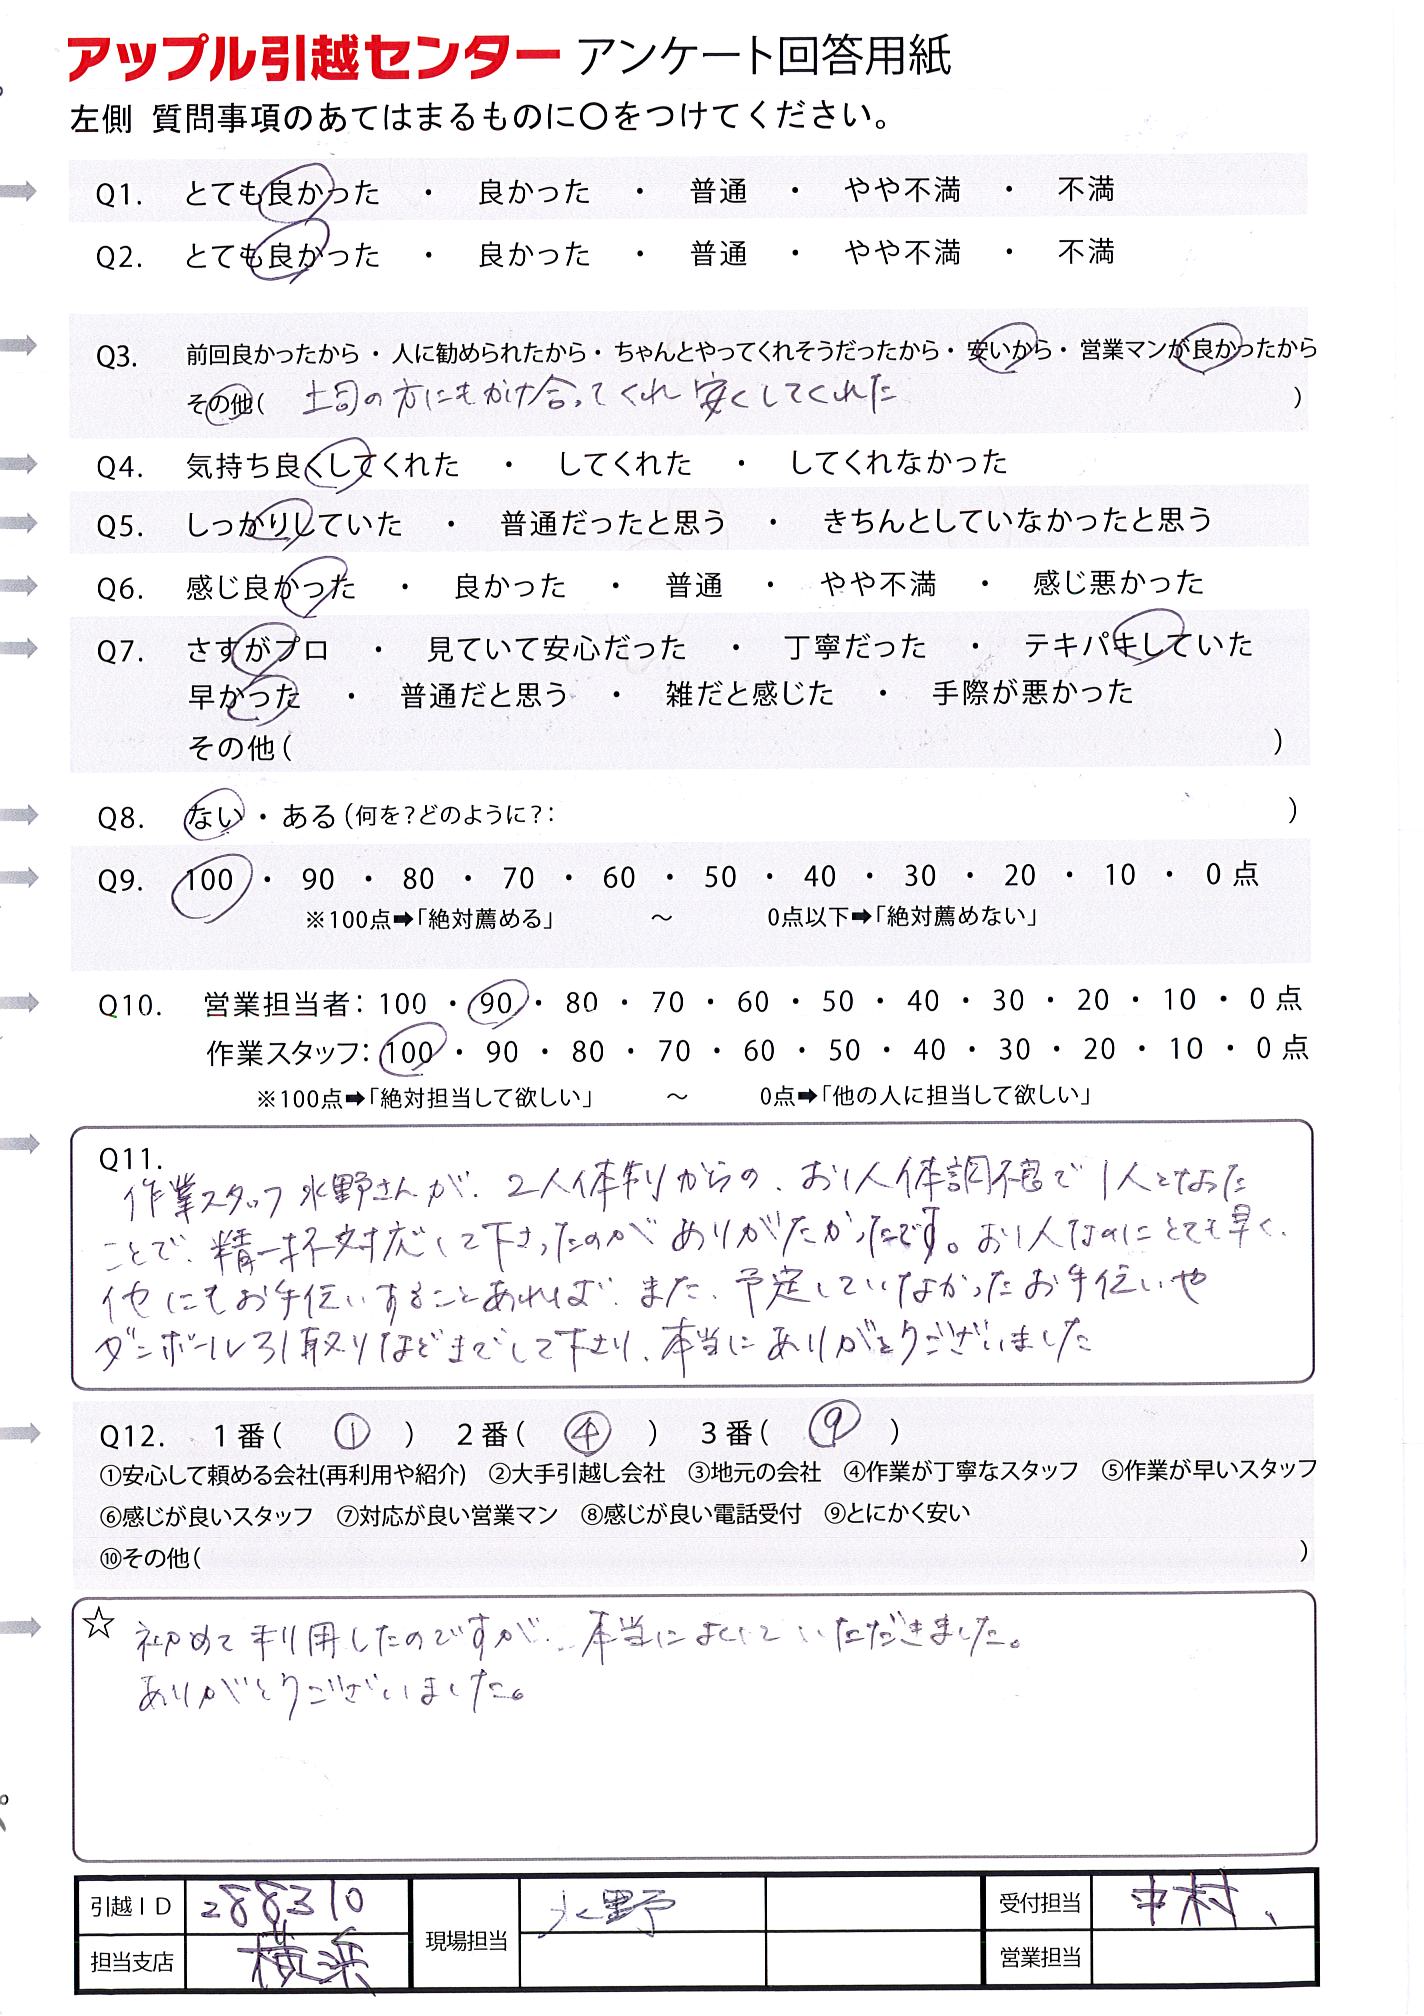 アップル引越センター アンケート回答用紙
左側 質問事項のあてはまるものに〇をつけてください。
Q1. とても良かった ・ 良かった ・ 普通 ・ やや不満 ・ 不満
Q2. とても良かった ・ 良かった ・ 普通 ・ やや不満 ・ 不満
Q3. 前回良かったから・人に勧められたから・ちゃんとやってくれそうだったから・安いから・営業マンが良かったから
その他( 上司の方にもかけ合ってくれ安くしてくれた )
Q4. 気持ち良くしてくれた ・ してくれた ・ してくれなかった
Q5. しっかりしていた ・ 普通だったと思う ・ きちんとしていなかったと思う
Q6. 感じ良かった ・ 良かった ・ 普通 ・ やや不満 ・ 感じ悪かった
Q7. さすがプロ ・ 見ていて安心だった ・ 丁寧だった ・ テキパキしていた
早かった ・ 普通だと思う ・ 雑だと感じた ・ 手際が悪かった
その他( )
Q8. ない・ある(何を?どのように?: )
Q9. 100 ・ 90 ・ 80 ・ 70 ・ 60 ・ 50 ・ 40 ・ 30 ・ 20 ・ 10 ・ 0点
※100点➡「絶対薦める」 ～ 0点以下➡「絶対薦めない」
Q10. 営業担当者: 100 ・ 90 ・ 80 ・ 70 ・ 60 ・ 50 ・ 40 ・ 30 ・ 20 ・ 10 ・ 0点
作業スタッフ: 100 ・ 90 ・ 80 ・ 70 ・ 60 ・ 50 ・ 40 ・ 30 ・ 20 ・ 10 ・ 0点
※100点➡「絶対担当して欲しい」 ～ 0点➡「他の人に担当して欲しい」
Q11.
作業スタッフ水野さんが、2人体制からの、お1人体調不良で1人となった
ことで、精一杯対応して下さったのがありがたかったです。お1人なのにとても早く、
他にもお手伝いすることあれば、また、予定していなかったお手伝いや
ダンボール引取りなどまでして下さり、本当にありがとうございました
Q12. 1番( ① ) 2番( ④ ) 3番( ⑨ )
①安心して頼める会社(再利用や紹介) ②大手引越し会社 ③地元の会社 ④作業が丁寧なスタッフ ⑤作業が早いスタッフ
⑥感じが良いスタッフ ⑦対応が良い営業マン ⑧感じが良い電話受付 ⑨とにかく安い
⑩その他( )
☆ 初めて利用したのですが、本当によくしていただきました。
ありがとうございました。
引越ID 288310 現場担当 水野 受付担当 中村、
担当支店 横浜 営業担当